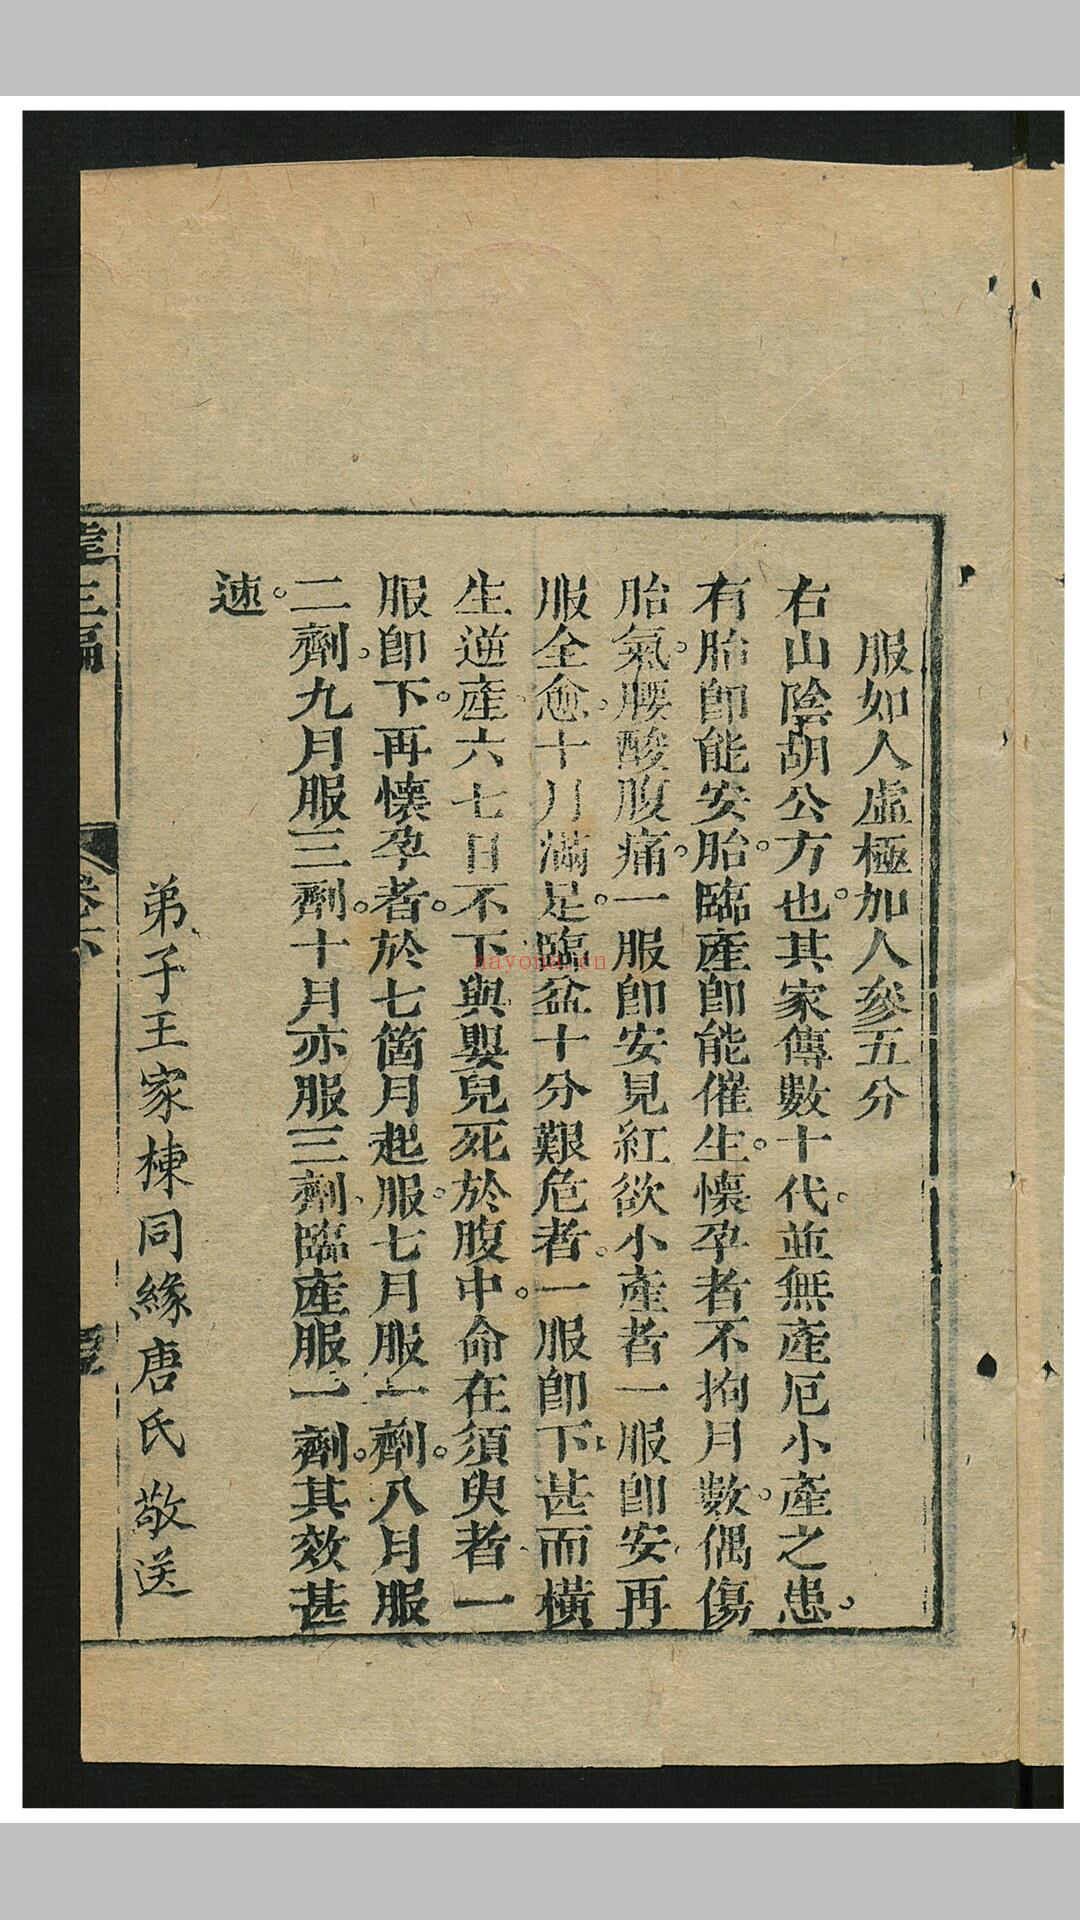 服如人虛極加人參五分
右山陰胡公方也。其家傳數十代。並無產厄小產之患。
有胎卽能安胎。臨產卽能催生。懷孕者不拘月數。偶傷
胎氣。腰酸腹痛。一服卽安見紅欲小產者一服卽安、再
服全愈。十月滿足。臨盆十分艱危者。一服卽下、甚而橫
生逆產。六七日不下、與嬰兒死於腹中。命在須臾者、一
服卽下。再懷孕者。於七箇月起服。七月服一劑。八月服
二劑。九月服三劑。十月亦服三劑、臨產服一劑。其效甚
速。
弟子王家棟同緣唐氏敬送
達生編
卷六
hayona.cn